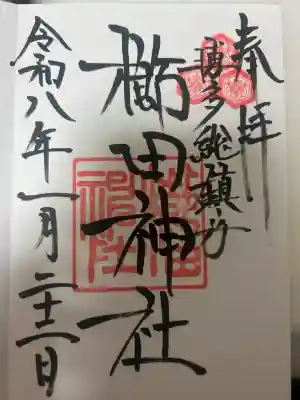 奉拝
博多総鎮守
櫛田神社
令和八年一月二十二日